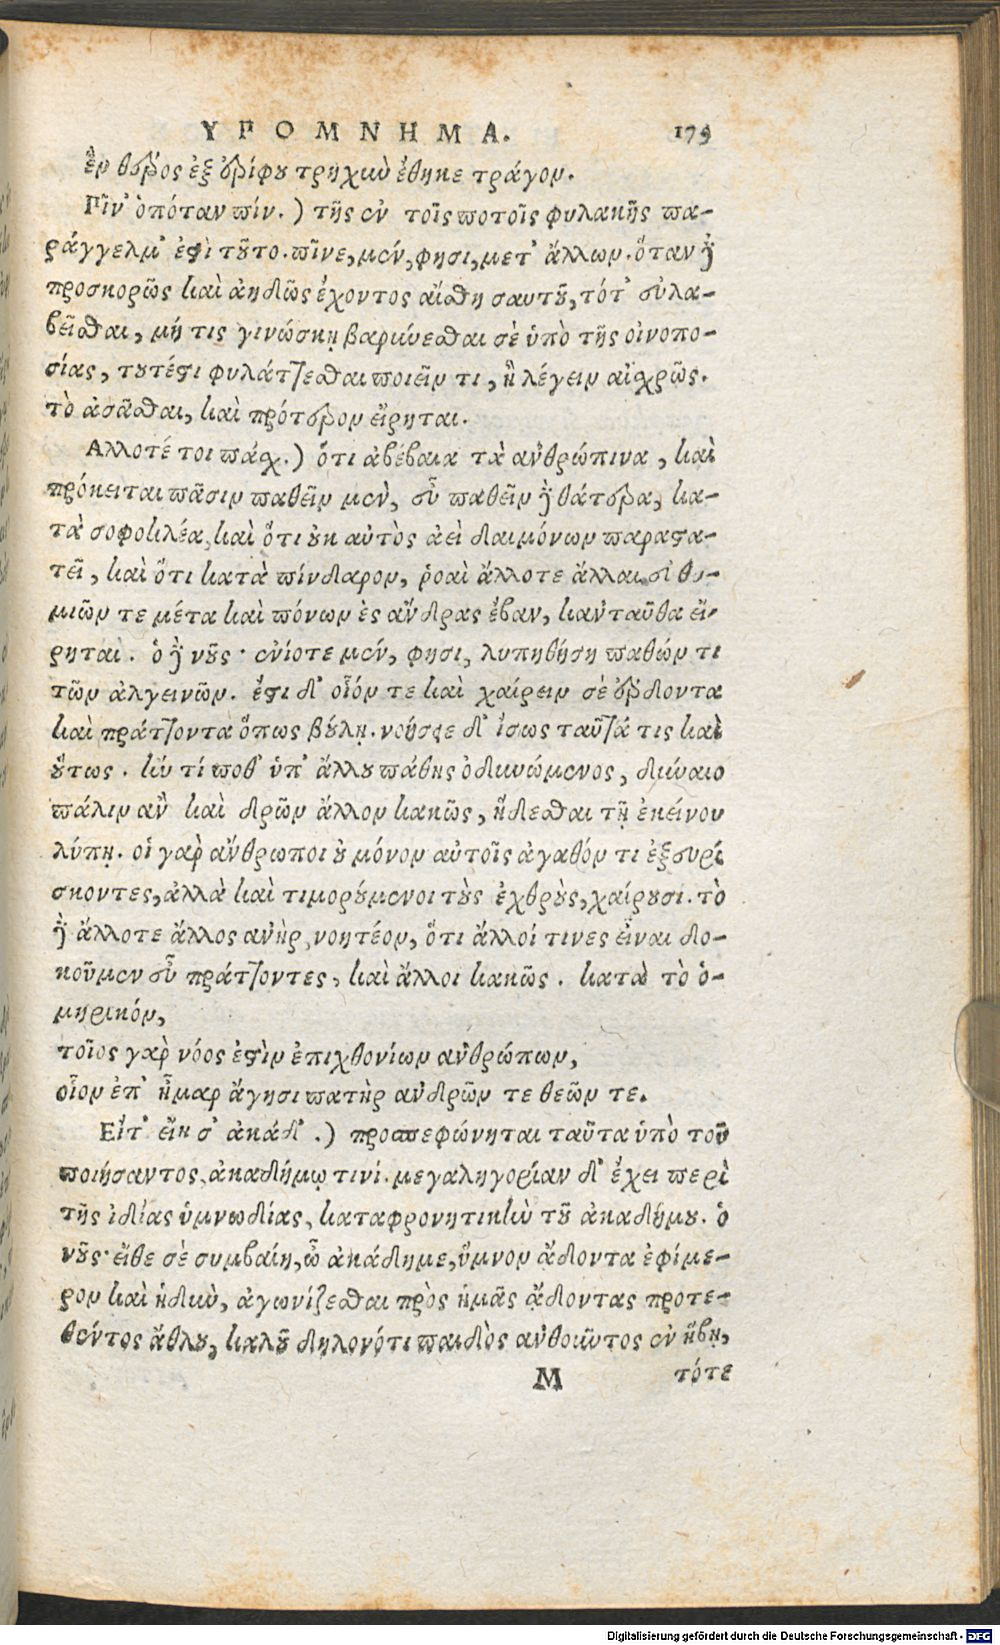 ΥΠΟΜΝΗΜΑ. 179
ἓν θέρος ἐξ ἐρίφου τρηχὺν ἔθηκε τράγον.
Πῖν' ὁπόταν πίν.) τῆς ἐν τοῖς ποτοῖς φυλακῆς πα-
ράγγελμ' ἐστὶ τοῦτο. πῖνε, μέν, φησι, μετ' ἄλλων. ὅταν δὲ
προσκορῶς καὶ ἀηδῶς ἔχοντος αἴσθη σαυτοῦ, τότ' εὐλα-
βεῖσθαι, μή τις γινώσκῃ βαρύνεσθαι σὲ ὑπὸ τῆς οἰνοπο-
σίας, τουτέστι φυλάττεσθαι ποιεῖν τι, ἢ λέγειν αἰσχρῶς.
τὸ ἀσᾶσθαι, καὶ πρότερον εἴρηται.
Αλλοτέ τοι πάσχ.) ὅτι ἀβέβαια τὰ ἀνθρώπινα, καὶ
πρόκειται πᾶσιν παθεῖν μὲν, εὖ παθεῖν δὲ θάτερα, κα-
τὰ σοφοκλέα, καὶ ὅτι οὐκ αὐτὸς ἀεὶ δαιμόνων παραστα-
τεῖ, καὶ ὅτι κατὰ πίνδαρον, ῥοαὶ ἄλλοτε ἄλλαι εὐθυ-
μιῶν τε μέτα καὶ πόνων ἐς ἄνδρας ἔβαν, κἀνταῦθα εἴ-
ρηται. ὁ δὲ νοῦς· ἐνίοτε μέν, φησι, λυπηθήση παθών τι
τῶν ἀλγεινῶν. ἔστι δ' οἷόν τε καὶ χαίρειν σὲ ἔρδοντα
καὶ πράττοντα ὅπως βούλῃ. νοήσειε δ' ἴσως ταῦτά τις καὶ
οὕτως. κἂν τί ποθ' ὑπ' ἄλλου πάθῃς ὀδυνώμενος, δύναιο
πάλιν ἂν καὶ δρῶν ἄλλον κακῶς, ἥδεσθαι τῇ ἐκείνου
λύπῃ. οἱ γὰρ ἄνθρωποι οὐ μόνον αὐτοῖς ἀγαθόν τι ἐξευρί
σκοντες, ἀλλὰ καὶ τιμορούμενοι τοὺς ἐχθροὺς, χαίρουσι. τὸ
δὲ ἄλλοτε ἄλλος ἀνὴρ, νοητέον, ὅτι ἄλλοί τινες εἶναι δο-
κοῦμεν εὖ πράττοντες, καὶ ἄλλοι κακῶς. κατὰ τὸ ὁ-
μηρικόν,
τοῖος γὰρ νόος ἐστὶν ἐπιχθονίων ἀνθρώπων,
οἷον ἐπ' ἦμαρ ἄγησι πατὴρ ἀνδρῶν τε θεῶν τε.
Εἶτ' εἴη σ' ἀκάδ'.) προσπεφώνηται ταῦτα ὑπὸ τοῦ
ποιήσαντος, ἀκαδήμῳ τινί. μεγαληγορίαν δ' ἔχει περὶ
τῆς ἰδίας ὑμνωδίας, καταφρονητικὴν τοῦ ἀκαδήμου. ὁ
νοῦς· εἴθε σὲ συμβαίη, ὦ ἀκάδημε, ὕμνον ἄδοντα ἐφίμε-
ρον καὶ ἡδὺν, ἀγωνίζεσθαι πρὸς ἡμᾶς ᾄδοντας προτε-
θέντος ἄθλου, καλοῦ δηλονότι παιδὸς ἀνθοῦντος ἐν ἥβῃ,
M τότε
Digitalisierung gefördert durch die Deutsche Forschungsgemeinschaft - DFG